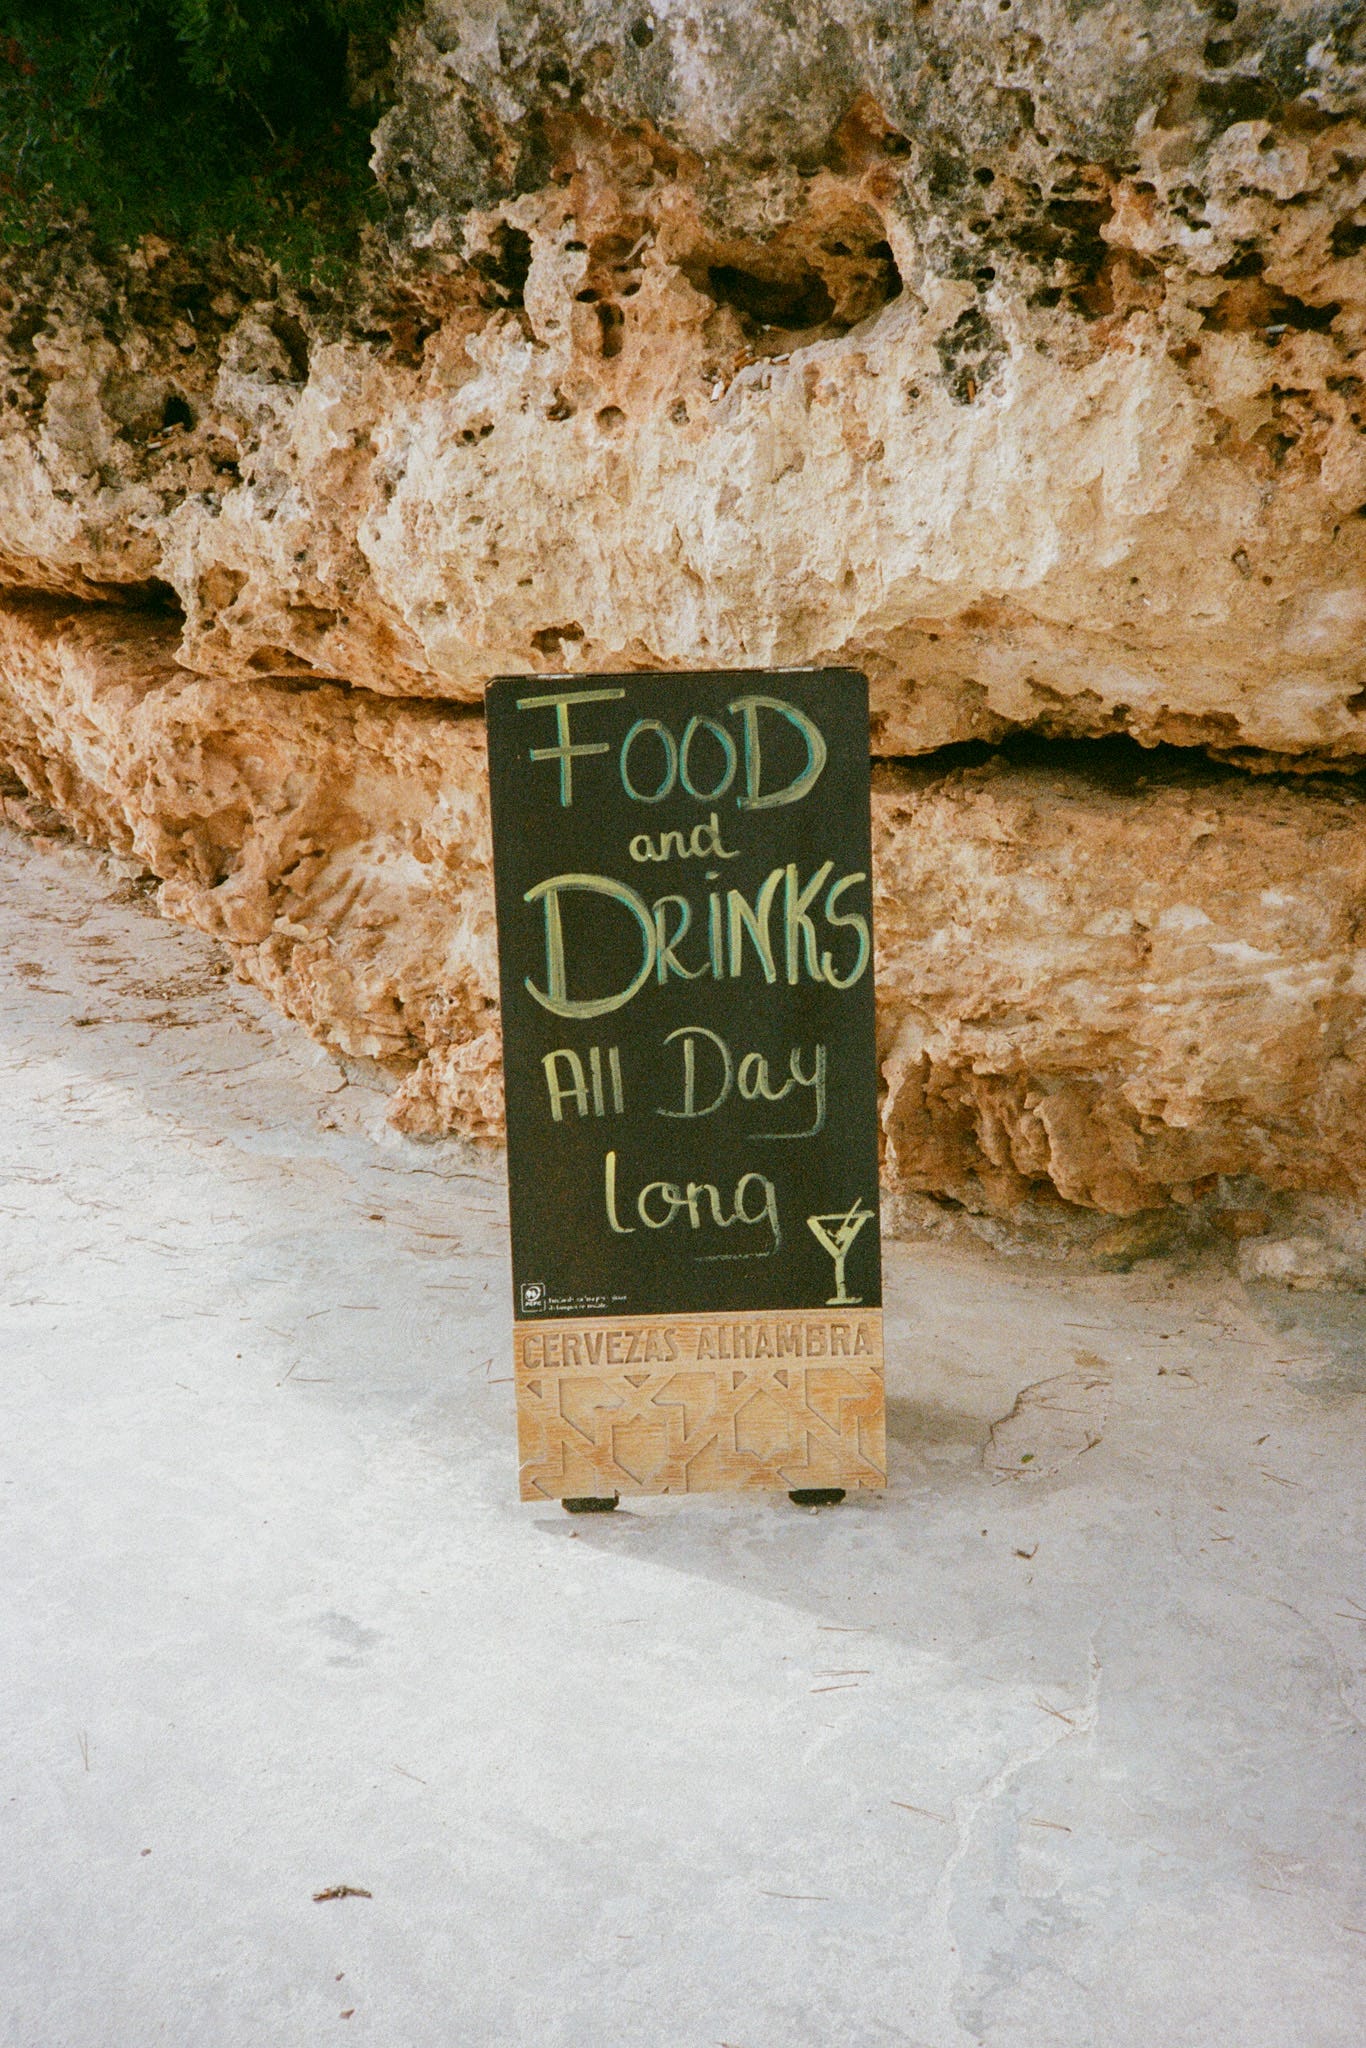 FOOD
and
DRiNKS
All Day
Long
PEFC
CERVEZAS ALHAMBRA